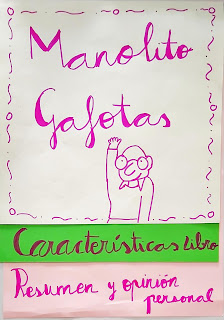 Manolito
Gafotas
Características Libro
Resumen y opinión
personal